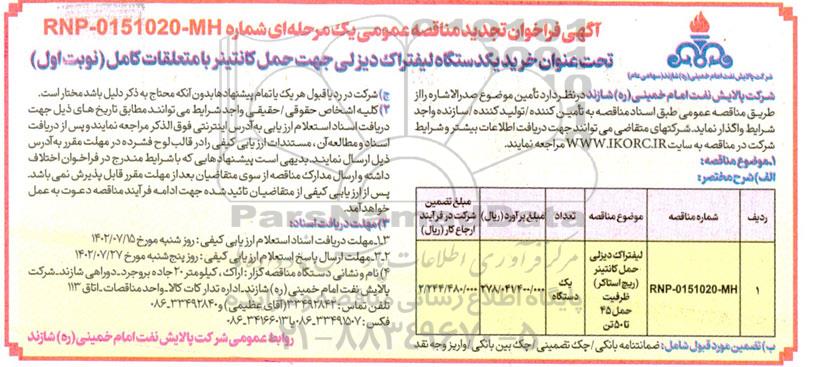 آگهی فراخوان تجدید مناقصه عمومی یک مرحله‌ای شماره RNP-0151020-MH
تحت عنوان خرید یکدستگاه لیفتراک دیزلی جهت حمل کانتینر با متعلقات کامل (نوبت اول)
شرکت پالایش نفت امام خمینی (ره) شازند (سهامی عام)
شرکت پالایش نفت امام خمینی (ره) شازند در نظر دارد تأمین موضوع صدرالاشاره را از
طریق مناقصه عمومی طبق اسناد مناقصه به تأمین کننده/تولید کننده/سازنده واجد
شرایط واگذار نماید. شرکتهای متقاضی می توانند جهت دریافت اطلاعات بیشتر و شرایط
شرکت در مناقصه به سایت WWW.IKORC.IR مراجعه نمایند.
۱.موضوع مناقصه:
الف) شرح مختصر:
ردیف
شماره مناقصه
موضوع مناقصه
تعداد
مبلغ برآورد (ریال)
مبلغ تضمین
شرکت در فرآیند
ارجاع کار (ریال)
۱
RNP-0151020-MH
لیفتراک دیزلی
حمل کانتینر
(ریچ استاکر)
ظرفیت
حمل ۴۵
تا ۵۰ تن
یک
دستگاه
ب) تضمین مورد قبول شامل: ضمانتنامه بانکی/چک تضمینی/چک بین بانکی/واریز وجه نقد
ج) شرکت در رد یا قبول هر یک یا تمام پیشنهادها بدون آنکه محتاج به ذکر دلیل باشد مختار است.
۲) کلیه اشخاص حقوقی/حقیقی واجد شرایط می توانند مطابق تاریخ های ذیل جهت
دریافت اسناد استعلام ارزیابی به آدرس اینترنتی فوق الذکر مراجعه نمایند و پس از دریافت
اسناد و مطالعه آن، مستندات ارزیابی کیفی را در قالب لوح فشرده در مهلت مقرر به آدرس
ذیل ارسال نمایند. بدیهی است پیشنهادهایی که با شرایط مندرج در فراخوان اختلاف
داشته و ارسال مدارک مناقصه از سوی متقاضیان بعد از مهلت مقرر قابل پذیرش نمی باشد.
پس از ارزیابی کیفی از متقاضیان تائید شده جهت ادامه فرآیند مناقصه دعوت به عمل
خواهد آمد.
۳) مهلت دریافت اسناد:
۳ـ۱ـ مهلت دریافت اسناد استعلام ارزیابی کیفی: روز شنبه مورخ ۱۴۰۲/۰۷/۱۵
۳ـ۲ـ مهلت ارسال پاسخ استعلام ارزیابی کیفی: روز پنج شنبه مورخ ۱۴۰۲/۰۷/۲۷
۴) نام و نشانی دستگاه مناقصه گزار: اراک، کیلومتر ۲۰ جاده بروجرد ـ دوراهی شازند ـ شرکت
پالایش نفت امام خمینی (ره) شازند ـ اداره تدارکات کالا ـ واحد مناقصات ـ اتاق ۱۱۳
تلفن تماس: ۳۳۴۹۲۸۴۲ (آقای عظیمی) و ۳۳۴۹۲۸۴۰-۰۸۶
فکس: ۳۳۴۹۱۵۰۷-۰۸۶
روابط عمومی شرکت پالایش نفت امام خمینی (ره) شازند
ParsNamadData
پایگاه اطلاع رسانی مناقصه و مزایده